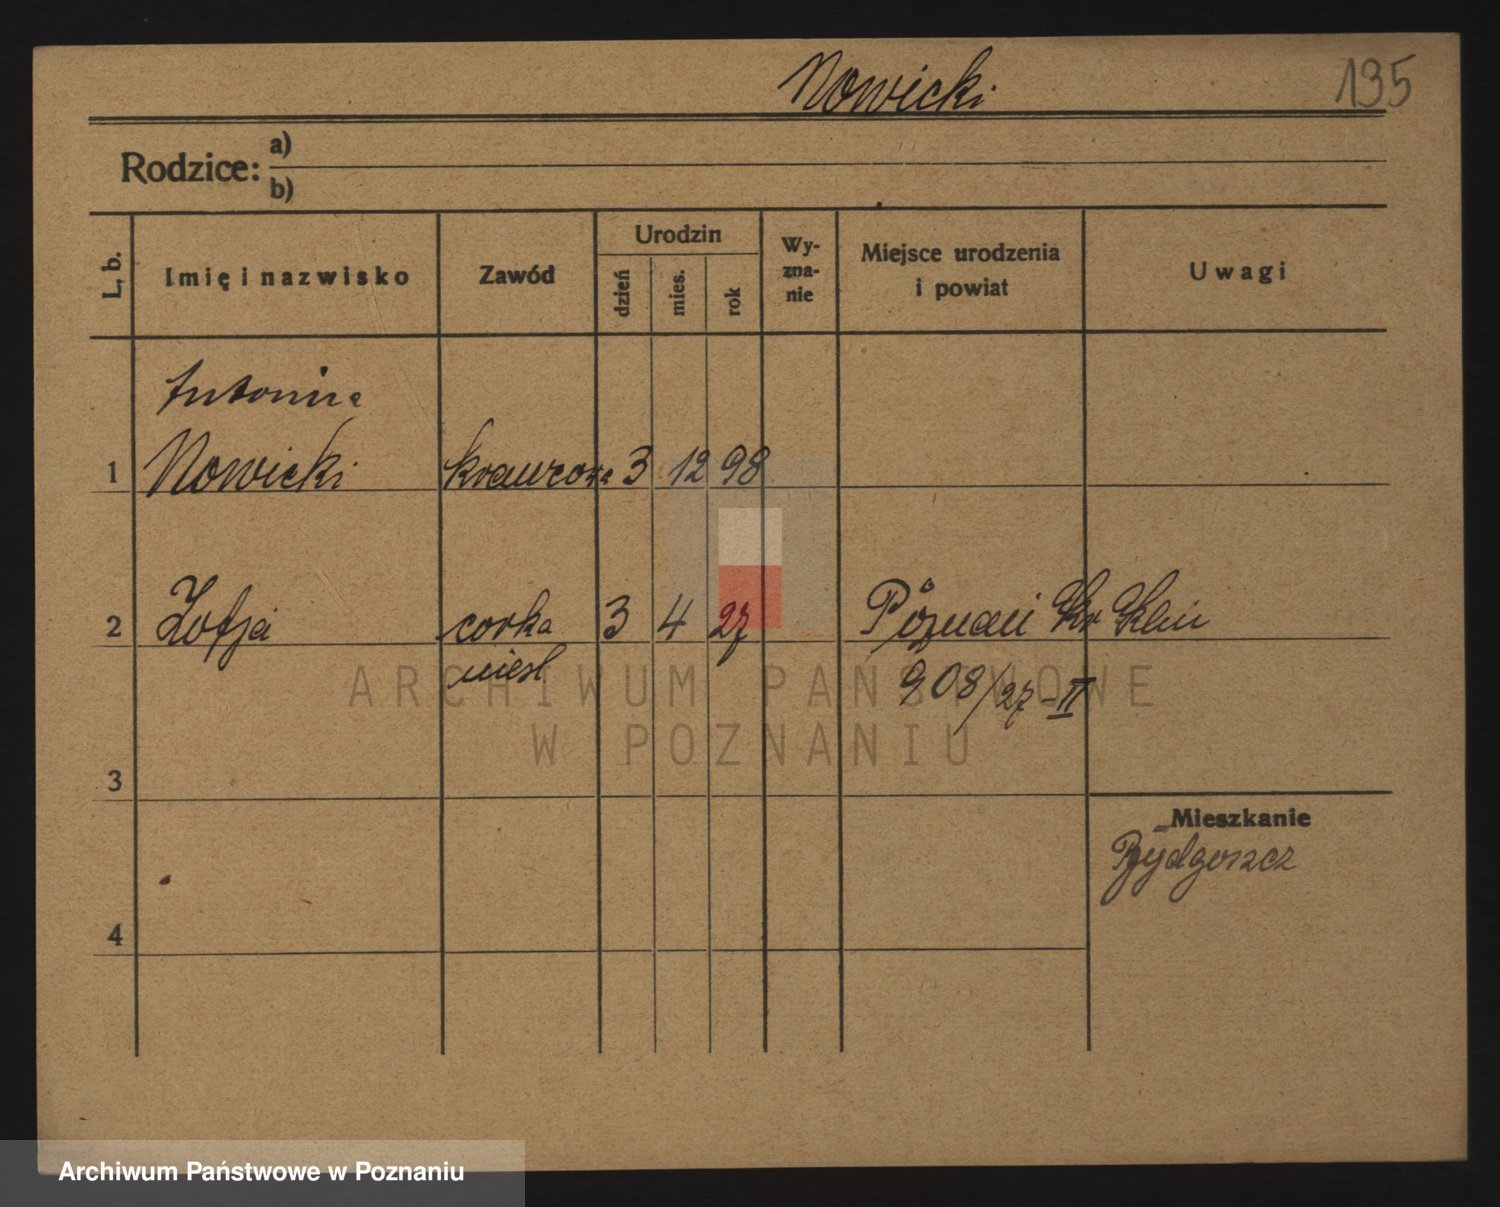 Nowicki
135
Rodzice: a)
b)
L. b.
Imię i nazwisko
Zawód
Urodzin
dzień
mies.
rok
Wy-
zna-
nie
Miejsce urodzenia
i powiat
Uwagi
Antonina
1 Nowicki krawcowa 3 12 98
2 Zofja corka 3 4 27 Poznań
niesl. 908/27-II
3
Mieszkanie
Bydgoszcz
4
ARCHIWUM PAŃSTWOWE
W POZNANIU
Archiwum Państwowe w Poznaniu